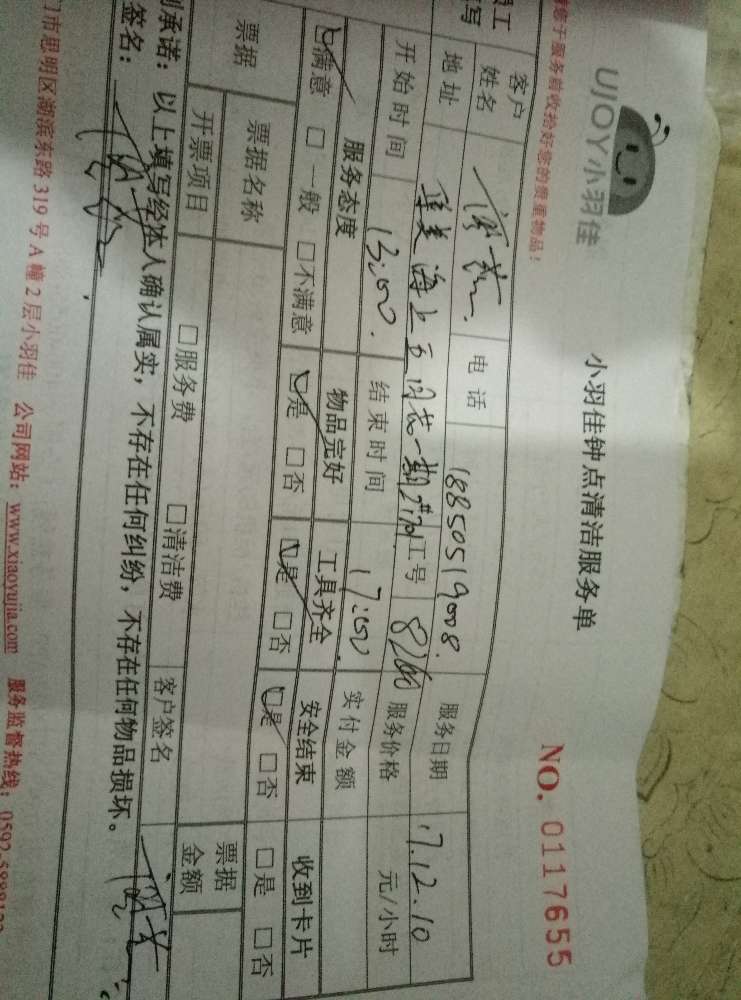 UJOY小羽佳
小羽佳钟点清洁服务单
NO. 0117655
于服务前收拾好您的贵重物品！
员工
填写
客户
姓名
电话
18850519008
服务日期
17.12.10
地址
工号
8260
服务价格
元/小时
开始时间
13:00
结束时间
17:00
实付金额
服务态度
物品完好
工具齐全
安全结束
收到卡片
☑满意 □一般 □不满意
☑是 □否
☑是 □否
☑是 □否
□是 □否
票据
票据名称
□服务费 □清洁费
票据
金额
开票项目
客户签名
承诺：以上填写经本人确认属实，不存在任何纠纷，不存在任何物品损坏。
签名：
门市思明区湖滨东路319号A幢2层小羽佳 公司网站：www.xiaoyujia.com 服务监督热线：0592-